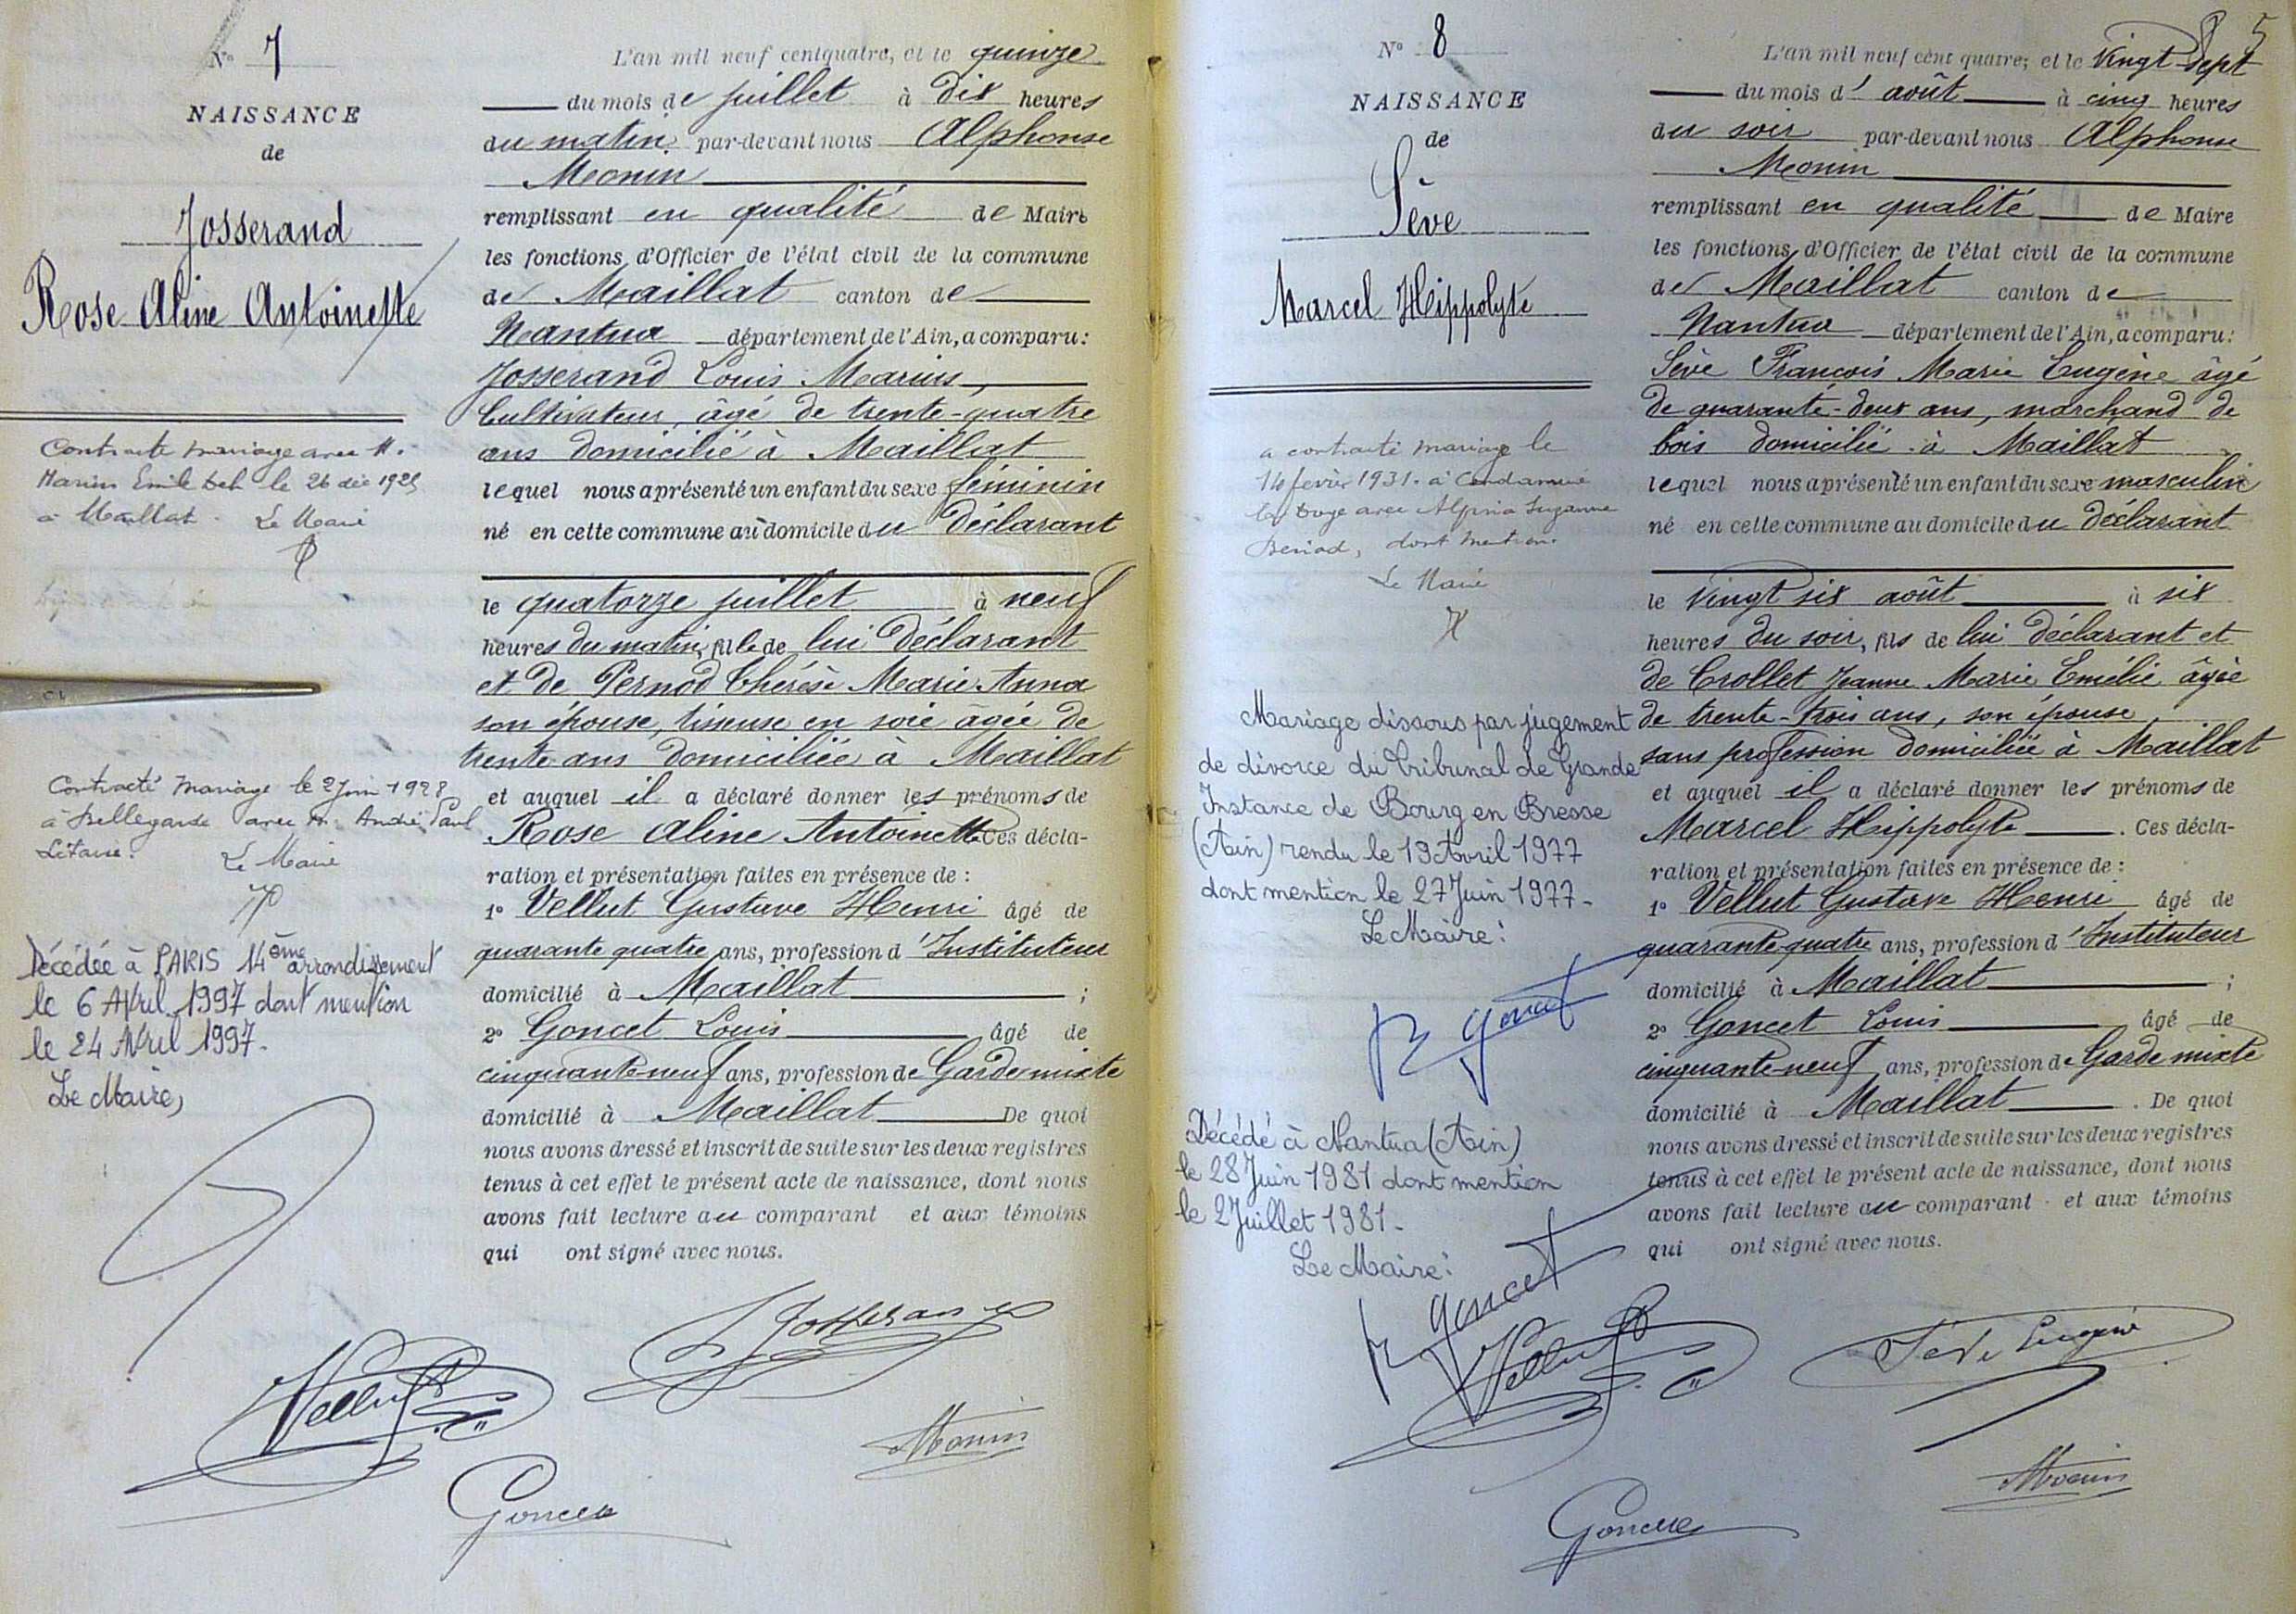 N° 7
NAISSANCE
de
Josserand
Rose Aline Antoinette
Contracte mariage avec M.
Marius Emile le 26 déc
à Maillat. Le Maire
Contracté mariage le 2 Juin 1928
à Bellegarde avec M. André Paul
Le Maire
Décédée à PARIS 14ème arrondissement
le 6 Avril 1997 dont mention
le 24 Avril 1997.
Le Maire,
L'an mil neuf cent quatre, et le quinze
du mois de juillet à dix heures
du matin, par-devant nous Alphonse
Monin
remplissant en qualité de Maire
les fonctions d'Officier de l'état civil de la commune
de Maillat canton de
Nantua département de l'Ain, a comparu:
Josserand Louis Marius,
Cultivateur, âgé de trente-quatre
ans domicilié à Maillat
lequel nous a présenté un enfant du sexe féminin
né en cette commune au domicile du déclarant
le quatorze juillet à neuf
heures du matin, fille de lui déclarant
et de Pernod Thérèse Marie Anna
son épouse, tisseuse en soie âgée de
trente ans domiciliée à Maillat
et auquel il a déclaré donner les prénoms de
Rose Aline Antoinette Ces décla-
ration et présentation faites en présence de :
1° Vellut Gustave Henri âgé de
quarante quatre ans, profession d'Instituteur
domicilié à Maillat ;
2° Goncet Louis âgé de
cinquante-neuf ans, profession de Garde mixte
domicilié à Maillat De quoi
nous avons dressé et inscrit de suite sur les deux registres
tenus à cet effet le présent acte de naissance, dont nous
avons fait lecture au comparant et aux témoins
qui ont signé avec nous.
Josserand
Vellut
Monin
Goncet
5
N° 8
NAISSANCE
de
Sève
Marcel Hippolyte
a contracté mariage le
14 février 1931. à Condamine
la Doye avec Alpina Suzanne
Beriod, dont mention.
Le Maire
Mariage dissous par jugement
de divorce du Tribunal de Grande
Instance de Bourg en Bresse
(Ain) rendu le 19 Avril 1977
dont mention le 27 Juin 1977-
Le Maire:
R Goncet
Décédé à Nantua (Ain)
le 28 Juin 1981 dont mention
le 2 Juillet 1981-
Le Maire:
R Goncet
L'an mil neuf cent quatre; et le vingt-sept
du mois d'août à cinq heures
du soir par-devant nous Alphonse
Monin
remplissant en qualité de Maire
les fonctions d'Officier de l'état civil de la commune
de Maillat canton de
Nantua département de l'Ain, a comparu:
Sève François Marie Eugène âgé
de quarante-deux ans, marchand de
bois domicilié à Maillat
lequel nous a présenté un enfant du sexe masculin
né en cette commune au domicile du déclarant
le vingt six août à six
heures du soir, fils de lui déclarant et
de Crollet Jeanne Marie Emélie âgée
de trente-trois ans, son épouse
sans profession domiciliée à Maillat
et auquel il a déclaré donner les prénoms de
Marcel Hippolyte . Ces décla-
ration et présentation faites en présence de :
1° Vellut Gustave Henri âgé de
quarante-quatre ans, profession d'Instituteur
domicilié à Maillat ;
2° Goncet Louis âgé de
cinquante-neuf ans, profession de Garde mixte
domicilié à Maillat . De quoi
nous avons dressé et inscrit de suite sur les deux registres
tenus à cet effet le présent acte de naissance, dont nous
avons fait lecture au comparant et aux témoins
qui ont signé avec nous.
Vellut
Sève Eugène
Monin
Goncet